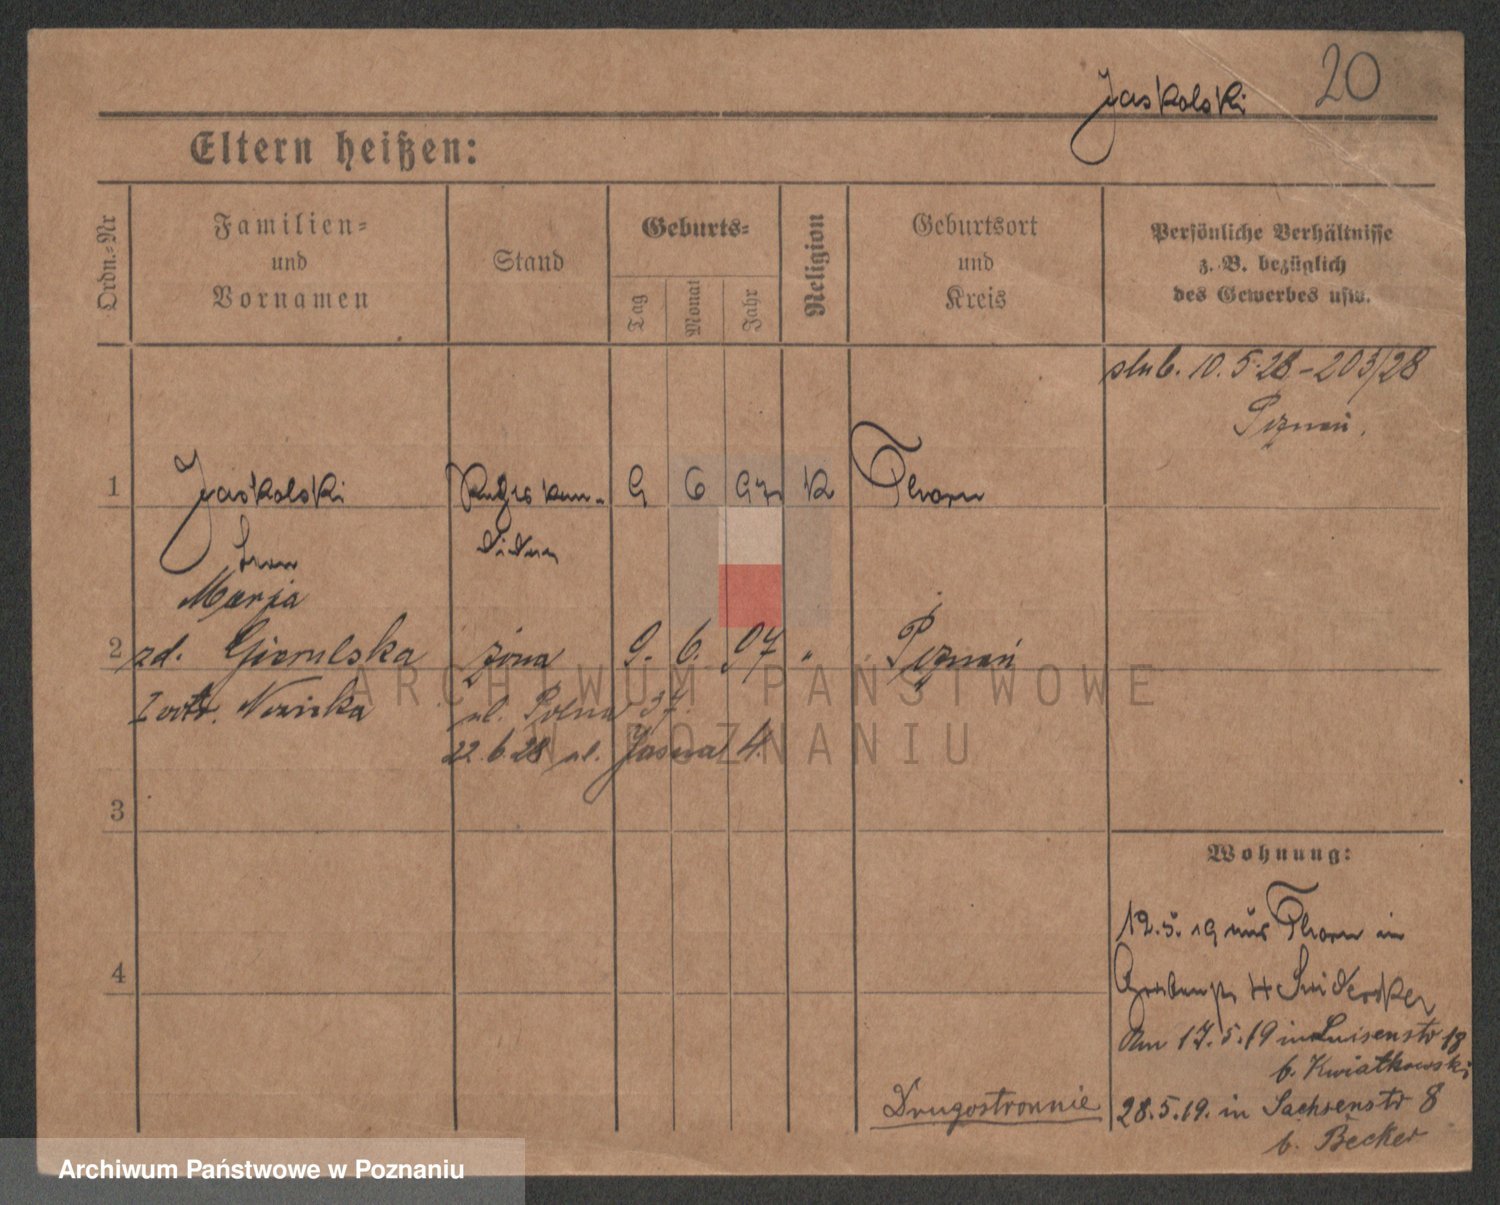 20
Jaskolski
Eltern heißen:
Ordn.-Nr
Familien-
und
Vornamen
Stand
Geburts-
Tag
Monat
Jahr
Religion
Geburtsort
und
Kreis
Persönliche Verhältnisse
z. B. bezüglich
des Gewerbes usw.
10. 5. 28 - 203/28
Poznań.
1 Jaskolski 9 6 97 K Thorn
Marja
2 zd. żona 9. 6. 97 " Poznań
ul. Polna 37.
22. 6. 28 ul. Jasna 4.
3
4
Wohnung:
12. 5. 19 aus Thorn in
Am 17. 5. 19 in Luisenstr 18
b. Kwiatkowski
28. 5. 19. in Sachsenstr 8
b. Becker
Drugostronnie
ARCHIWUM PAŃSTWOWE
W POZNANIU
Archiwum Państwowe w Poznaniu